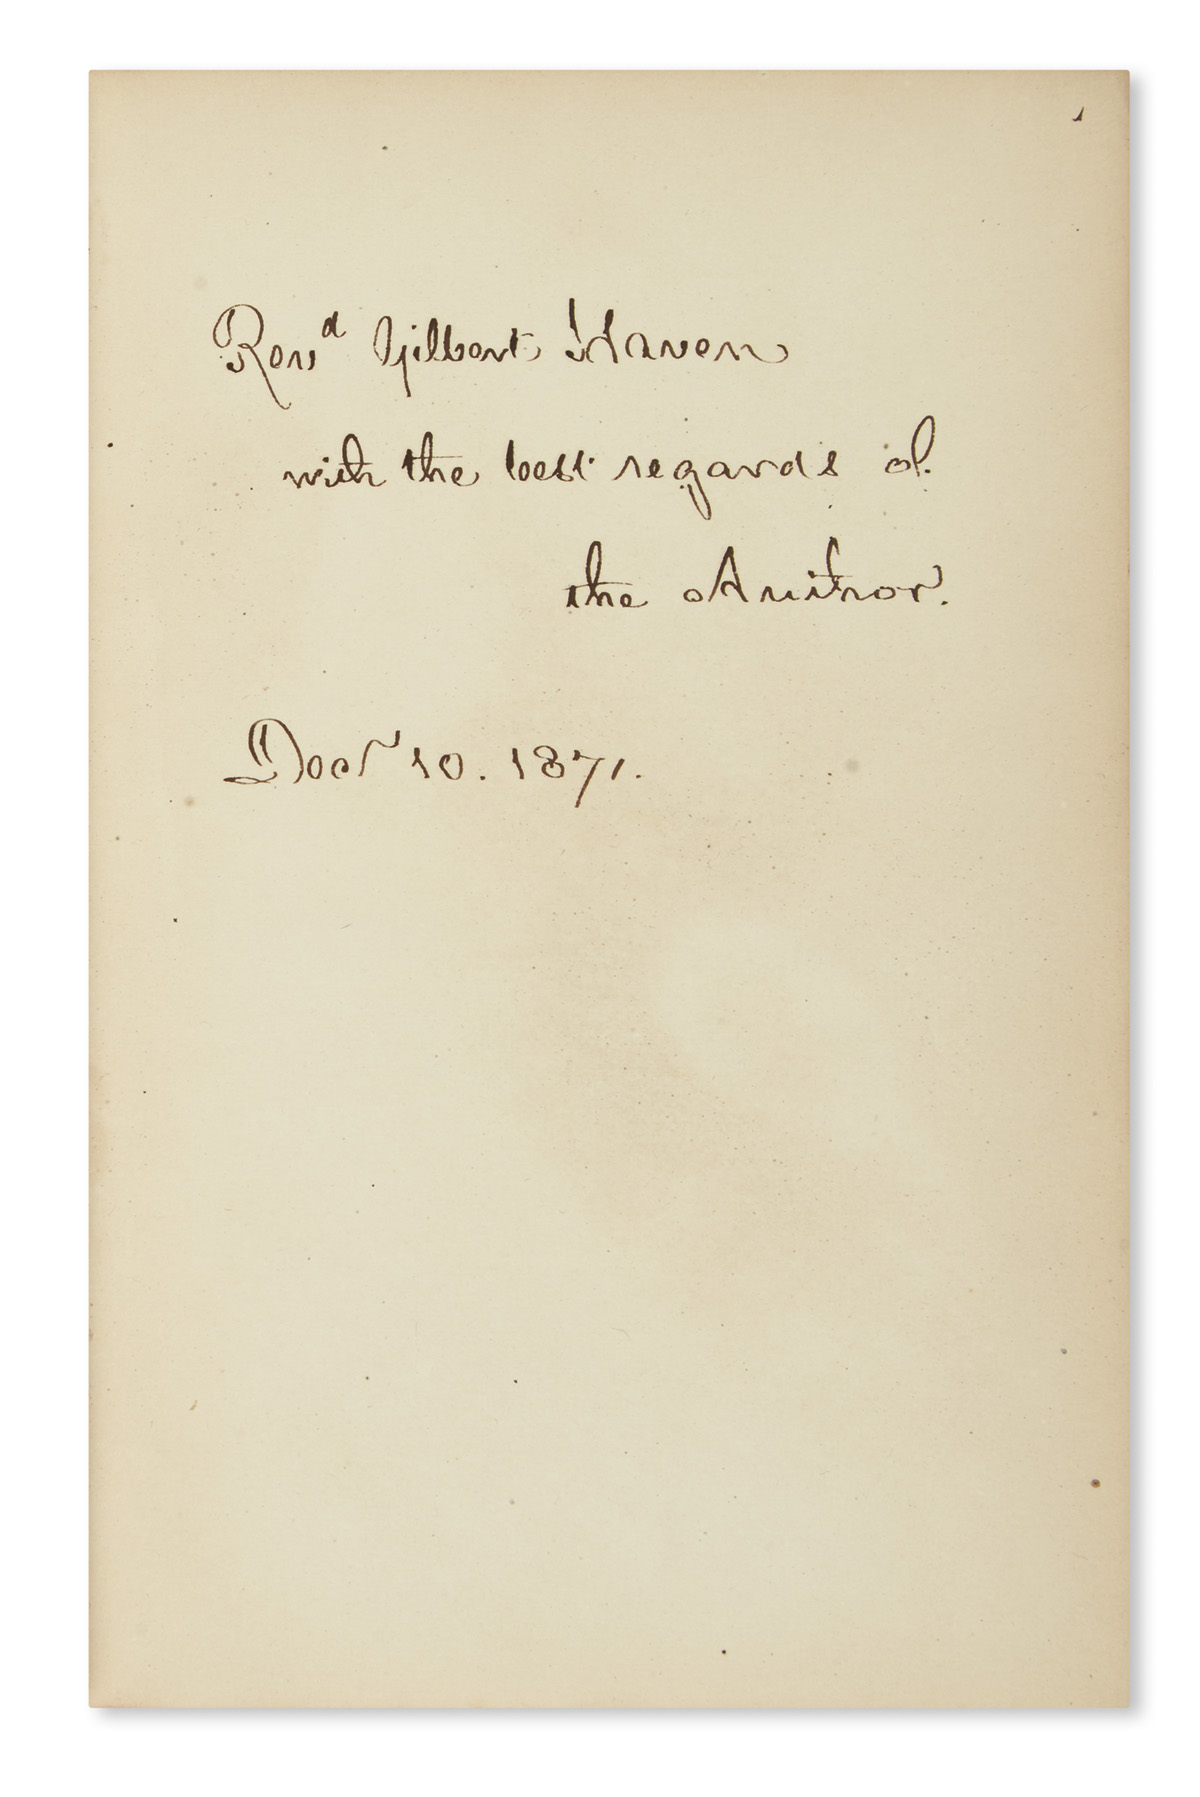 Revd Gilbert Haven
with the best regards of
the Author.
Decr 10. 1871.